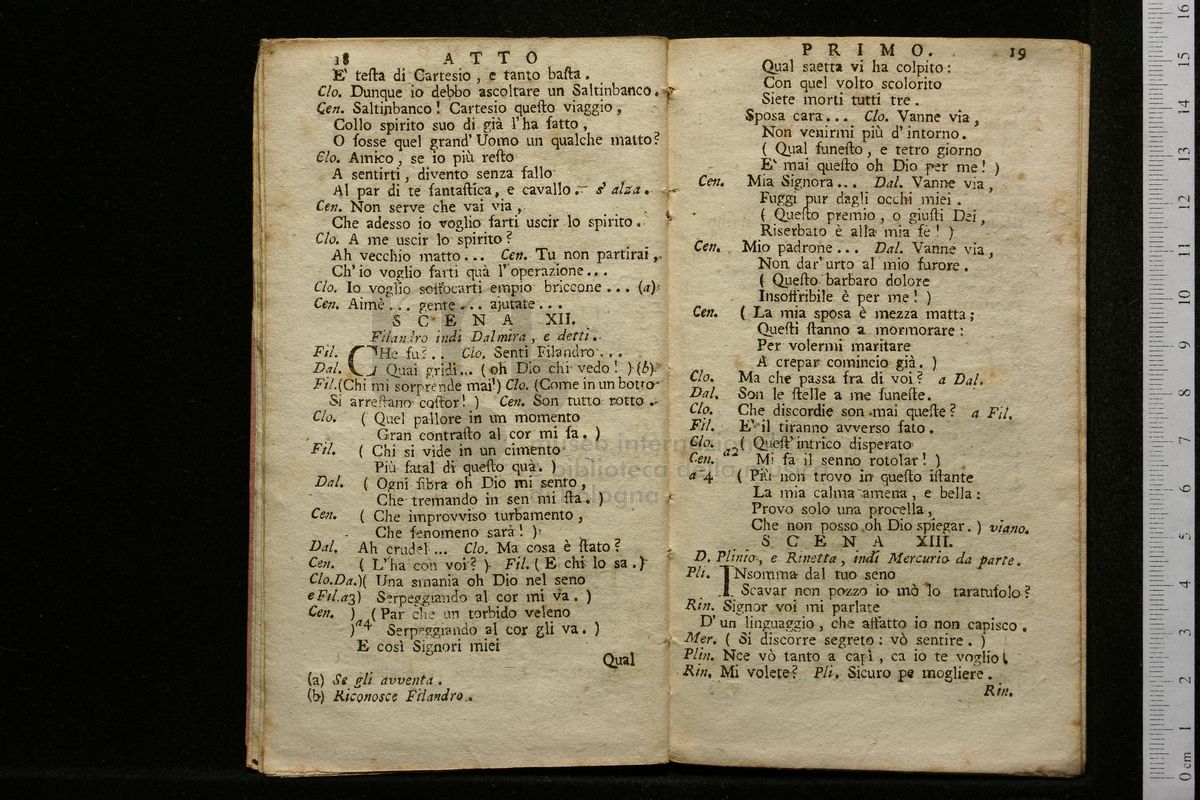 18 ATTO
E' teſta di Carteſio, e tanto baſta.
Clo. Dunque io debbo aſcoltare un Saltinbanco.
Cen. Saltinbanco! Carteſio queſto viaggio,
Collo spirito suo di già l'ha fatto,
O foſse quel grand' Uomo un qualche matto?
Clo. Amico, se io più reſto
A sentirti, divento senza fallo
Al par di te fantaſtica, e cavallo.- s' alza.
Cen. Non serve che vai via,
Che adesso io voglio farti uscir lo spirito.
Clo. A me uscir lo spirito?
Ah vecchio matto... Cen. Tu non partirai,
Ch' io voglio farti quà l'operazione...
Clo. Io voglio soffocarti empio briccone... (a)
Cen. Aimè... gente... ajutate...
SCENA XII.
Filandro indi Dalmira, e detti.
Fil. CHe fu?.. Clo. Senti Filandro...
Dal. Quai gridi... (oh Dio chi vedo!) (b)
Fil. (Chi mi sorprende mai!) Clo. (Come in un botto
Si arreſtano coſtor!) Cen. Son tutto rotto.
Clo. ( Quel pallore in un momento
Gran contraſto al cor mi fa. )
Fil. ( Chi si vide in un cimento
Più fatal di queſto quà. )
Dal. ( Ogni fibra oh Dio mi sento,
Che tremando in sen mi ſta. )
Cen. ( Che improvviso turbamento,
Che fenomeno sarà! )
Dal. Ah crudel... Clo. Ma cosa è ſtato?
Cen. ( L'ha con voi? ) Fil. ( E chi lo sa. )
Clo.Da.)( Una smania oh Dio nel seno
e Fil.a3) Serpeggiando al cor mi va. )
Cen. ) ( Par che un torbido veleno
)a4 Serpeggiando al cor gli va. )
E così Signori miei
Qual
(a) Se gli avventa.
(b) Riconosce Filandro.
PRIMO. 19
Qual saetta vi ha colpito:
Con quel volto scolorito
Siete morti tutti tre.
Sposa cara... Clo. Vanne via,
Non venirmi più d' intorno.
( Qual funeſto, e tetro giorno
E' mai queſto oh Dio per me! )
Cen. Mia Signora... Dal. Vanne via,
Fuggi pur dagli occhi miei.
( Queſto premio, o giuſti Dei,
Riserbato è alla mia fè! )
Cen. Mio padrone... Dal. Vanne via,
Non dar' urto al mio furore.
( Queſto barbaro dolore
Insoffribile è per me! )
Cen. ( La mia sposa è mezza matta;
Queſti ſtanno a mormorare:
Per volermi maritare
A crepar comincio già. )
Clo. Ma che passa fra di voi? a Dal.
Dal. Son le ſtelle a me funeſte.
Clo. Che discordie son mai queſte? a Fil.
Fil. E' il tiranno avverso fato.
Clo. ( Queſt' intrico disperato
Cen. a2 Mi fa il senno rotolar! )
a 4 ( Più non trovo in queſto iſtante
La mia calma amena, e bella:
Provo solo una procella,
Che non posso oh Dio spiegar. ) viano.
SCENA XIII.
D. Plinio, e Rinetta, indi Mercurio da parte.
Pli. INsomma dal tuo seno
Scavar non pozzo io mò lo taratufolo?
Rin. Signor voi mi parlate
D' un linguaggio, che affatto io non capisco.
Mer. ( Si discorre segreto: vò sentire. )
Plin. Nce vò tanto a capì, ca io te voglio!
Rin. Mi volete? Pli. Sicuro pe mogliere.
Rin.
museo internazionale
biblioteca della musica
bologna
0 cm 1 2 3 4 5 6 7 8 9 10 11 12 13 14 15 16